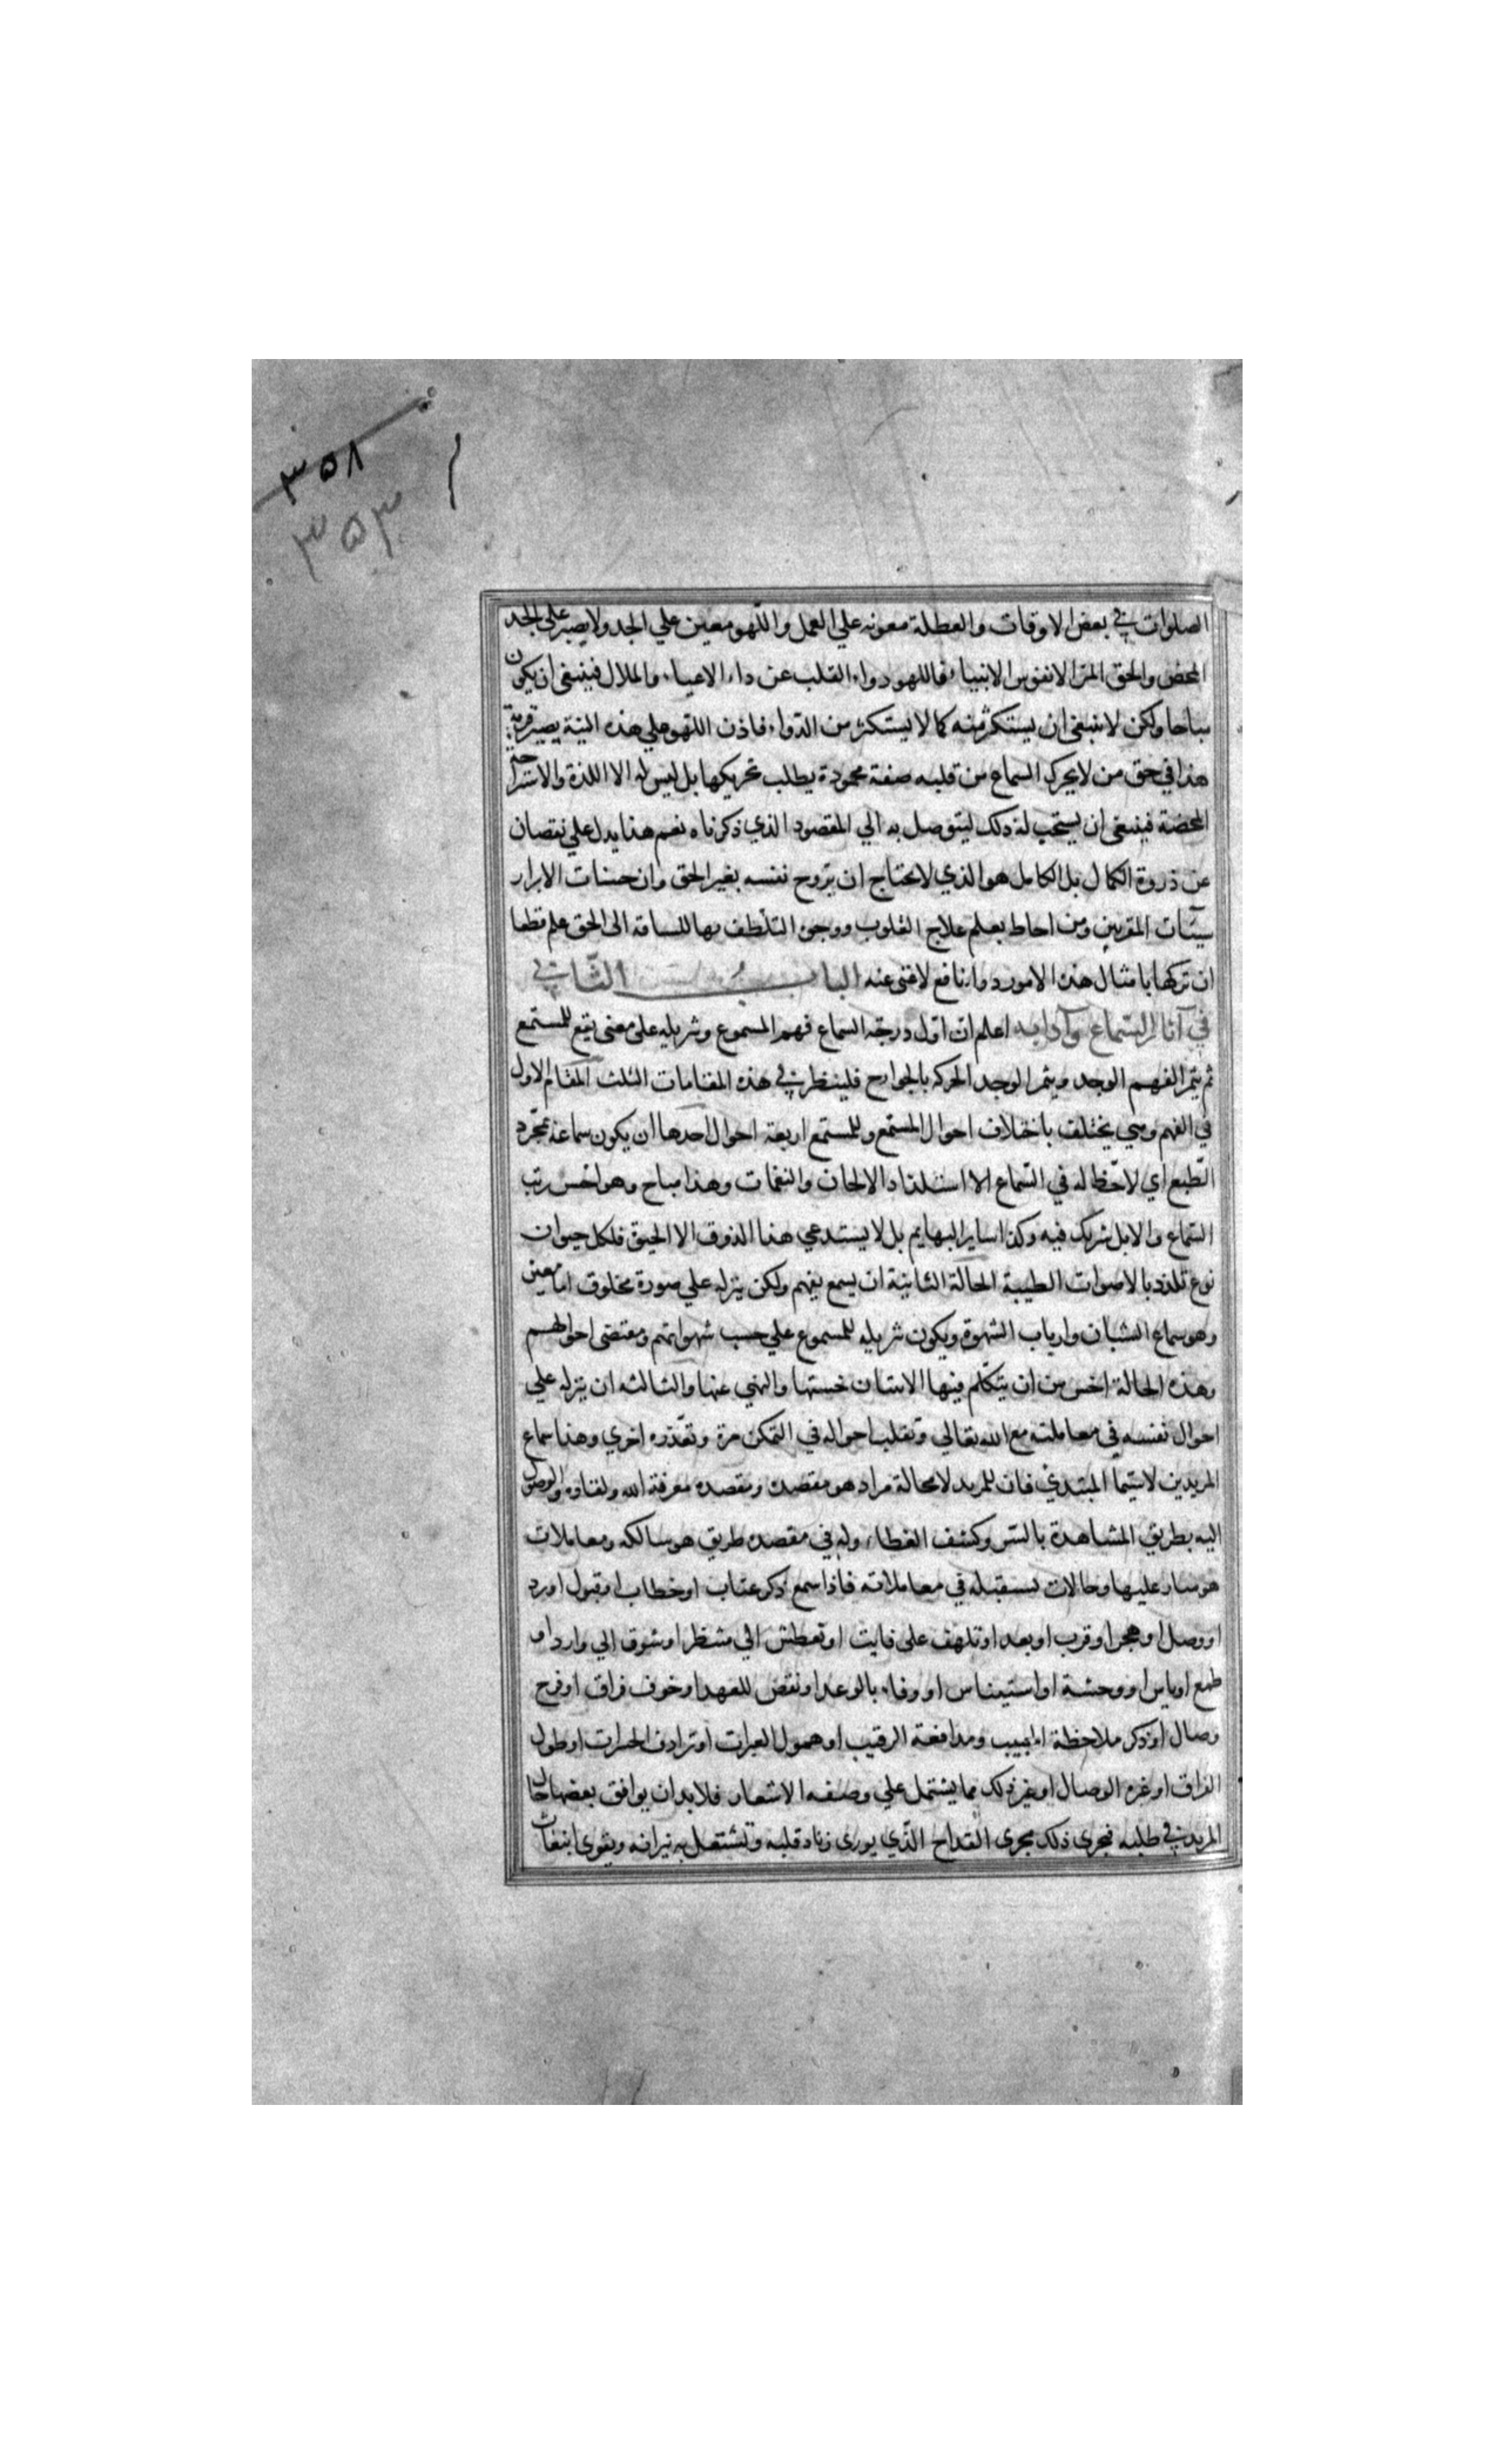 ٣٥٨
٣٥٣
الصلوات في بعض الاوقات والعطلة معونه علي العمل واللّهو معين علي الجد ولا يصبر علي الجد
المحض والحق المرّ الا نفوس الانبياء فاللهو دواء القلب عن داء الاعياء والملال فينبغى ان يكون
مباحا ولكن لا ينبغى ان يستكثر منه كما لا يستكثر من الدّواء فاذن اللّهو علي هذه النية يصير قربة
هذا في حق من لا يحرك السماع من قلبه صفة محمودة يطلب تحريكها بل ليس له الا اللذة والاستراحة
المحضة فينبغى ان يستحب له ذلك ليتوصل به الي المقصود الذي ذكرناه نعم هذا يدل علي نقصان
عن ذروة الكمال بل الكامل هو الذي لا يحتاج ان يروح نفسه بغير الحق وان حسنات الابرار
سيّئات المقربين ومن احاط بعلم علاج القلوب ووجوه التلّطف بها للساقة الى الحق علم قطعا
ان تركها بامثال هذه الامور دواء نافع لا غنى عنه الباب الثّاني
في آثار السّماع وآدابه اعلم ان اوّل درجة السماع فهم المسموع وتنزيله على معنى يقع للمستمع
ثم يثمر الفهم الوجد ويثمر الوجد الحركه بالجوارح فلينظر في هذه المقامات الثلث المقام الاول
في الفهم وهي يختلف باختلاف احوال المستمع وللمستمع اربعة احوال احدها ان يكون سماعه بمجرّد
الطّبع اي لا حظّ له في السّماع الا استلذاذ الالحان والنغمات وهذا مباح وهو اخس رتب
السّماع والابل شريك فيه وكذا ساير البهايم بل لا يستدعي هذا الذوق الا الحيوة فلكل حيوان
نوع تلذذ بالاصوات الطيبة الحالة الثانية ان يسمع بفهم ولكن ينزله علي صورة مخلوق اما معين
وهو سماع الشبان وارباب الشهوة ويكون تنزيله للمسموع علي حسب شهواتهم ومقتضى احوالهم
وهذه الحالة اخس من ان يتكلّم فيها الا ببيان خستها والنهي عنها والثالثه ان ينزله علي
احوال نفسه في معاملته مع الله تعالي وتقلب احواله في التمكن مرة وتعّذره اخري وهذا سماع
المريدين لا سيّما المبتدئ فان للمريد لا محالة مراد هو مقصده ومقصده معرفة الله ولقاؤه والوصول
اليه بطريق المشاهدة بالسّر وكشف الغطاء وله في مقصده طريق هو سالكه ومعاملات
هو سار عليها وحالات تستقبله في معاملاته فاذا سمع ذكر عتاب او خطاب او قبول او رد
او وصل او هجر او قرب او بعد او تلهف على فايت او تعطش الي منتظر او شوق الي وارد او
طمع او ياس او وحشة او استيناس او وفاء بالوعد او نقض للعهد او خوف فراق او فرح
وصال او ذكر ملاحظة الحبيب ومدافعة الرقيب او همول العبرات او ترادف الحسرات او طول
الفراق او غره الوصال او غير ذلك مما يشتمل علي وصفه الاشعار فلا بد ان يوافق بعضها حال
المريد في طلبه فجرى ذلك مجرى القداح الّذي يورى زناد قلبه وتشتعل به نيرانه ويقوى انبعاث